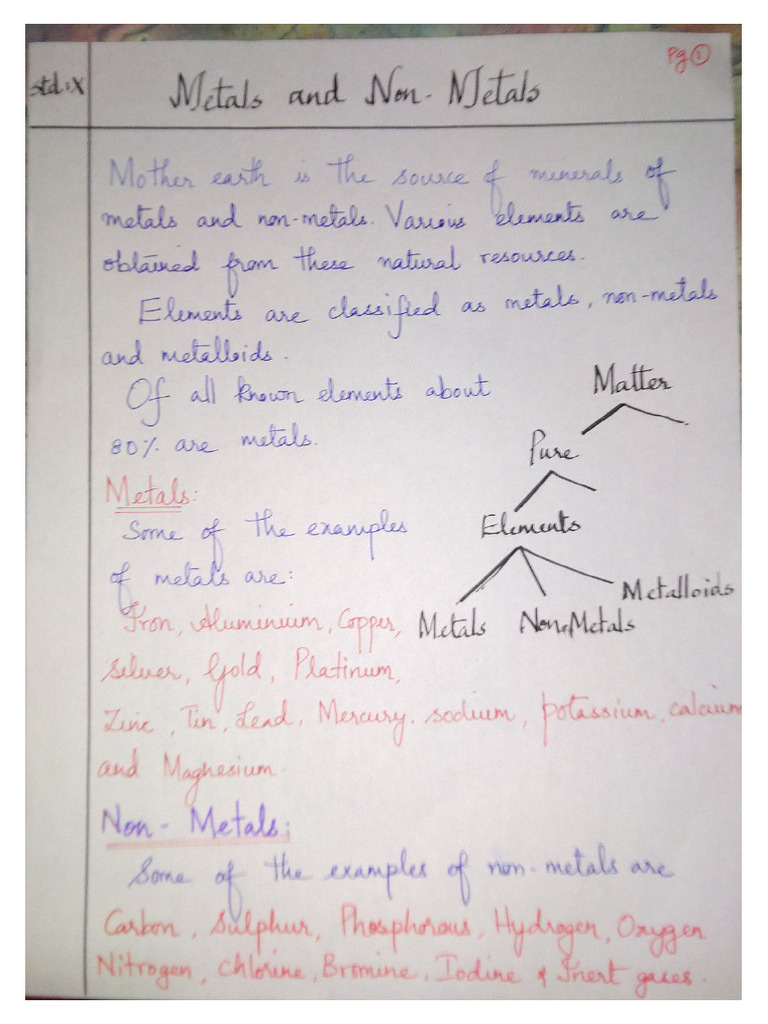 Pg ①
std: X
Metals and Non-Metals
Mother earth is the source of minerals of
metals and non-metals. Various elements are
obtained from these natural resources.
Elements are classified as metals, non-metals
and metalloids.
Of all known elements about
80% are metals.
Matter
Pure
Elements
Metals Non-Metals Metalloids
Metals:
Some of the examples
of metals are:
Iron, Aluminium, Copper,
Silver, Gold, Platinum,
Zinc, Tin, Lead, Mercury, sodium, potassium, calcium
and Magnesium.
Non-Metals:
Some of the examples of non-metals are
Carbon, Sulphur, Phosphorous, Hydrogen, Oxygen
Nitrogen, Chlorine, Bromine, Iodine & Inert gases.